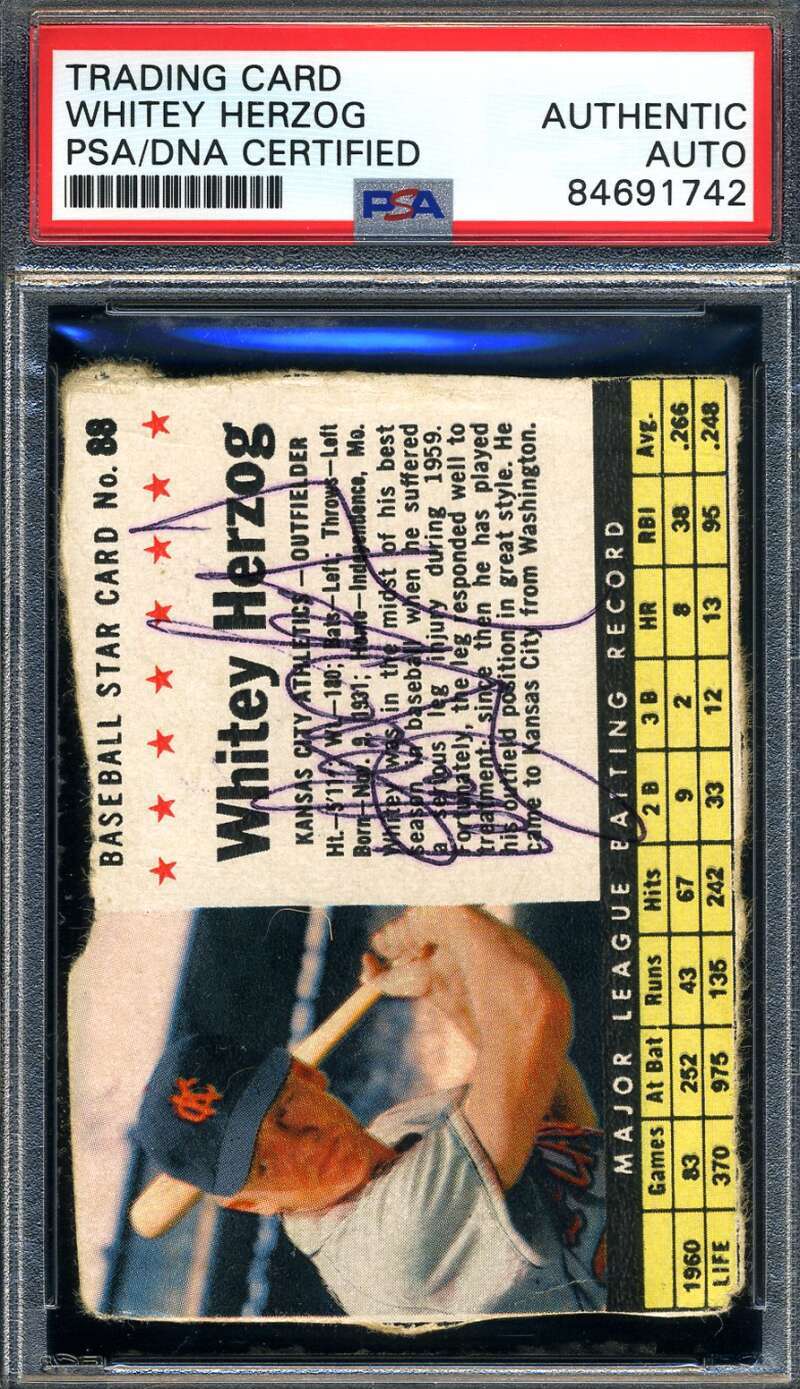 TRADING CARD
WHITEY HERZOG
PSA/DNA CERTIFIED
AUTHENTIC
AUTO
84691742
PSA
BASEBALL STAR CARD No. 88
Whitey Herzog
KANSAS CITY ATHLETICS—OUTFIELDER
Ht.—5'11"; Wt.—180; Bats—Left; Throws—Left
Born—Nov. 9, 1931; Home—Independence, Mo.
Whitey was in the midst of his best
season in baseball when he suffered
a serious leg injury during 1959.
Fortunately, the leg responded well to
treatment; since then he has played
his outfield position in great style. He
came to Kansas City from Washington.
MAJOR LEAGUE BATTING RECORD
Games At Bat Runs Hits 2 B 3 B HR RBI Avg.
1960 83 252 43 67 9 2 8 38 .266
LIFE 370 975 135 242 33 12 13 95 .248